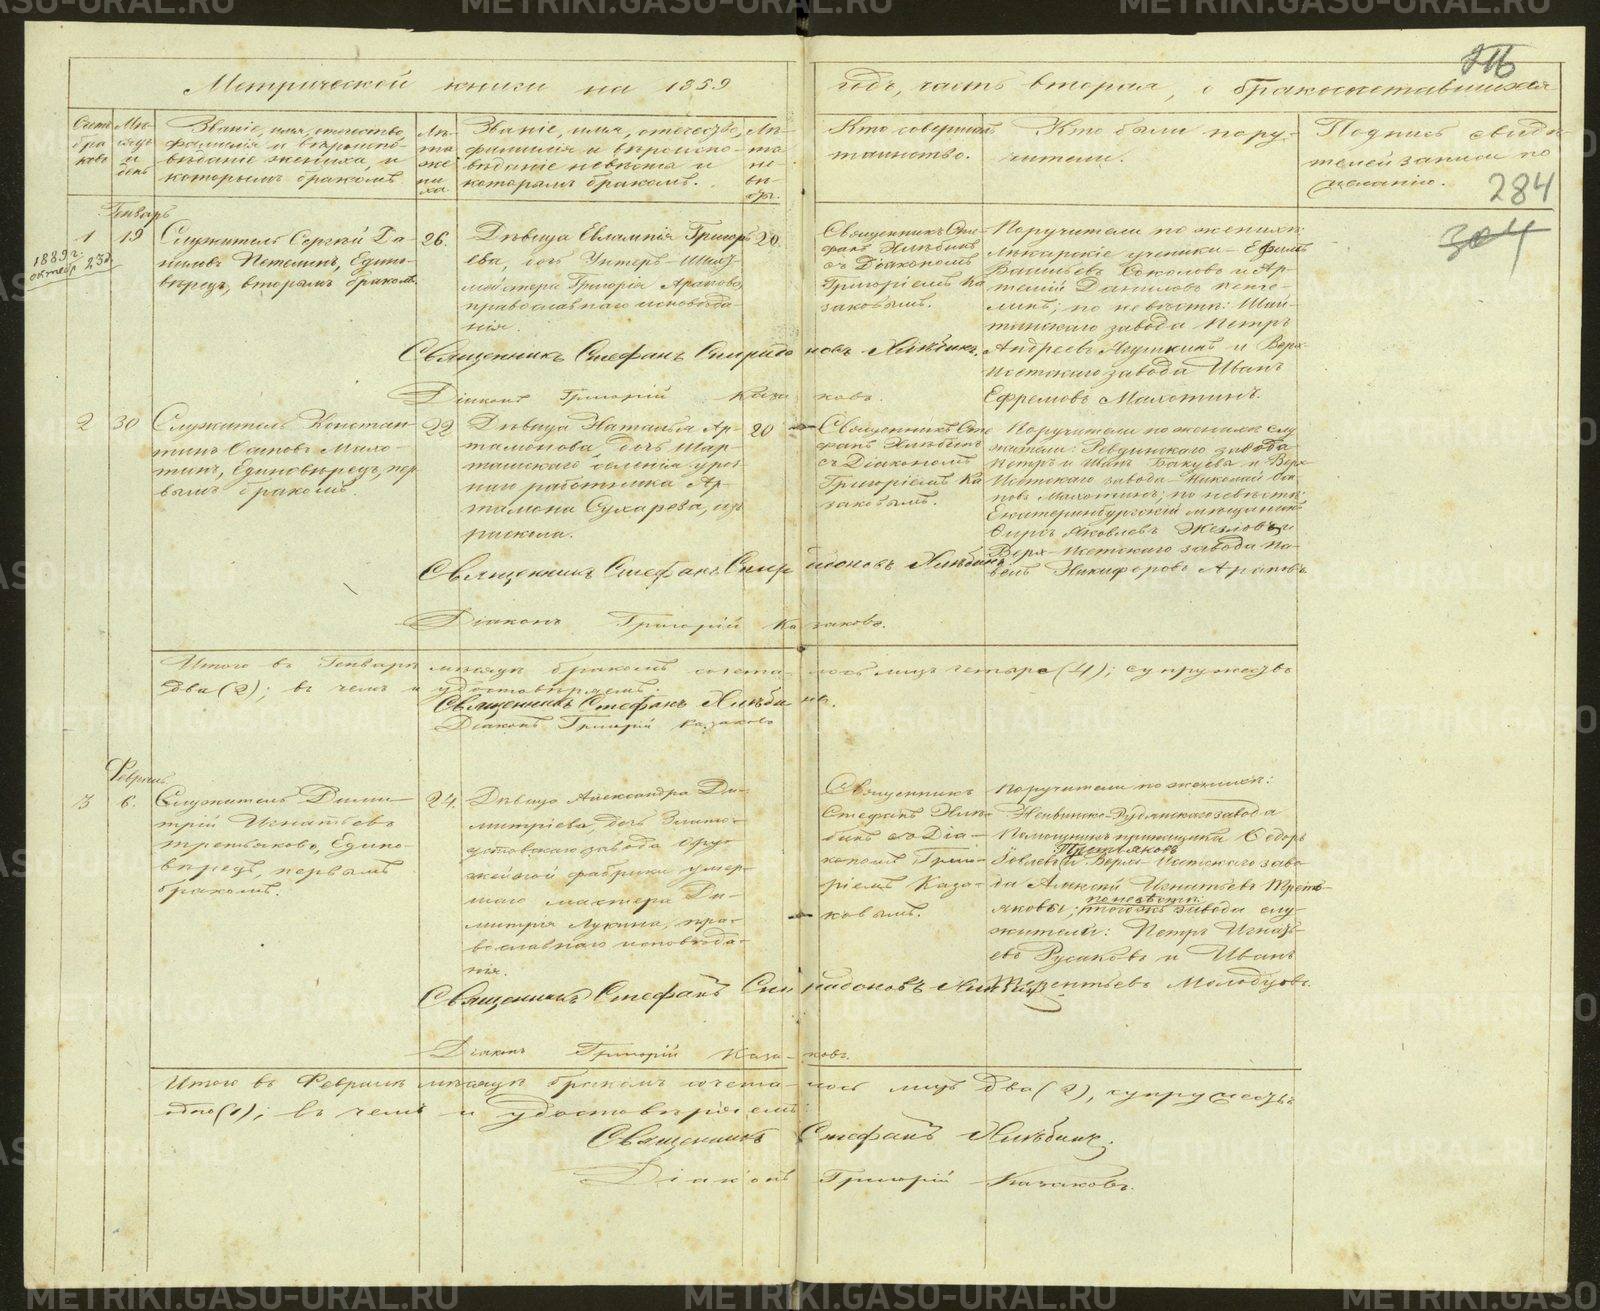 Метрической книги на 1859 годъ, часть вторая, о бракосочетавшихся
284
304
Счетъ браковъ
Мѣсяцъ и день
Званіе, имя, отечество,
фамилія и вѣроиспо-
вѣданіе жениха и
которымъ бракомъ
Лѣта жениха
Званіе, имя, отечество,
фамилія и вѣроиспо-
вѣданіе невѣсты и
которымъ бракомъ.
Лѣта невѣсты
Кто совершалъ
таинство.
Кто были пору-
чители.
Подпись свидѣ-
телей записи по
желанію.
Генварь
1 19
1889 г.
октябр 23 д.
Служитель Сергѣй Да-
ниловъ Пепелинъ, Едино-
вѣрецъ, вторымъ бракомъ.
26.
Дѣвица Евлампія Григорь-
ева, дочь Унтеръ-Шихт-
мейстера Григорія Арапова,
православнаго исповѣда-
нія.
20.
Священникъ Сте-
фанъ Хлѣбинъ
съ Діакономъ
Григоріемъ Ка-
заковымъ.
Поручители по женихѣ:
лѣкарскіе ученики Ефимъ
Васильевъ Соколовъ и Ар-
темій Даниловъ Пепе-
линъ; по невѣстѣ: Шай-
танскаго завода Петръ
Андреевъ и Верх-
Исетскаго завода Иванъ
Ефремовъ Махотинъ.
Священникъ Стефанъ Спиридоновъ Хлѣбинъ.
Діаконъ Григорій Казаковъ.
2 30
Служитель Констан-
тинъ Саповъ Махо-
тинъ, Единовѣрецъ, пер-
вымъ бракомъ.
22
Дѣвица Наталья Ар-
тамонова, дочь Шар-
ташскаго селенія уроч-
наго работника Ар-
тамона Сухарева, изъ
раскола.
20
Священникъ Сте-
фанъ Хлѣбинъ
съ Діакономъ
Григоріемъ Ка-
заковымъ.
Поручители по женихѣ слу-
жители: Ревдинскаго завода
Петръ и Иванъ и Верх-
Исетскаго завода Николай Са-
повъ Махотинъ; по невѣстѣ:
Екатеринбургскій мѣщанинъ
Яковлевъ и
Верх-Исетскаго завода Па-
велъ Никифоровъ Араповъ
Священникъ Стефанъ Спиридоновъ Хлѣбинъ
Діаконъ Григорій Казаковъ.
Итого въ Генварѣ мѣсяцѣ бракомъ сочета- лось лицъ четыре (4); супружествъ
два (2); въ чемъ и удостовѣряемъ
Священникъ Стефанъ Хлѣбинъ.
Діаконъ Григорій Казаковъ
Февраль.
3 6.
Служитель Дими-
трій Игнатьевъ
Третьяковъ, Едино-
вѣрецъ, первымъ
бракомъ.
24.
Дѣвица Александра Ди-
митріева, дочь Злато-
устовскаго завода Ору-
жейной фабрики умер-
шаго мастера Ди-
митрія Лукина, пра-
вославнаго исповѣда-
нія.
Священникъ
Стефанъ Хлѣ-
бинъ съ Діа-
кономъ Григо-
ріемъ Каза-
ковымъ.
Поручители по женихѣ:
Нейвинско-Рудянскаго завода
Помощникъ прикащика Ѳедоръ
и Верхъ-Исетскаго заво-
да Алексѣй Игнатьевъ Треть-
яковы; по невѣстѣ: того жъ завода слу-
жители: Петръ Игнать-
евъ Русаковъ и Иванъ
Терентьевъ Молодцовъ.
Священникъ Стефанъ Спиридоновъ Хлѣбинъ
Діаконъ Григорій Казаковъ.
Итого въ Февралѣ мѣсяцѣ бракомъ сочета- лось лицъ два (2), супружествъ
одно (1); въ чемъ и удостовѣряемъ:
Священникъ Стефанъ Хлѣбинъ.
Діаконъ Григорій Казаковъ.
METRIKI.GASO-URAL.RU